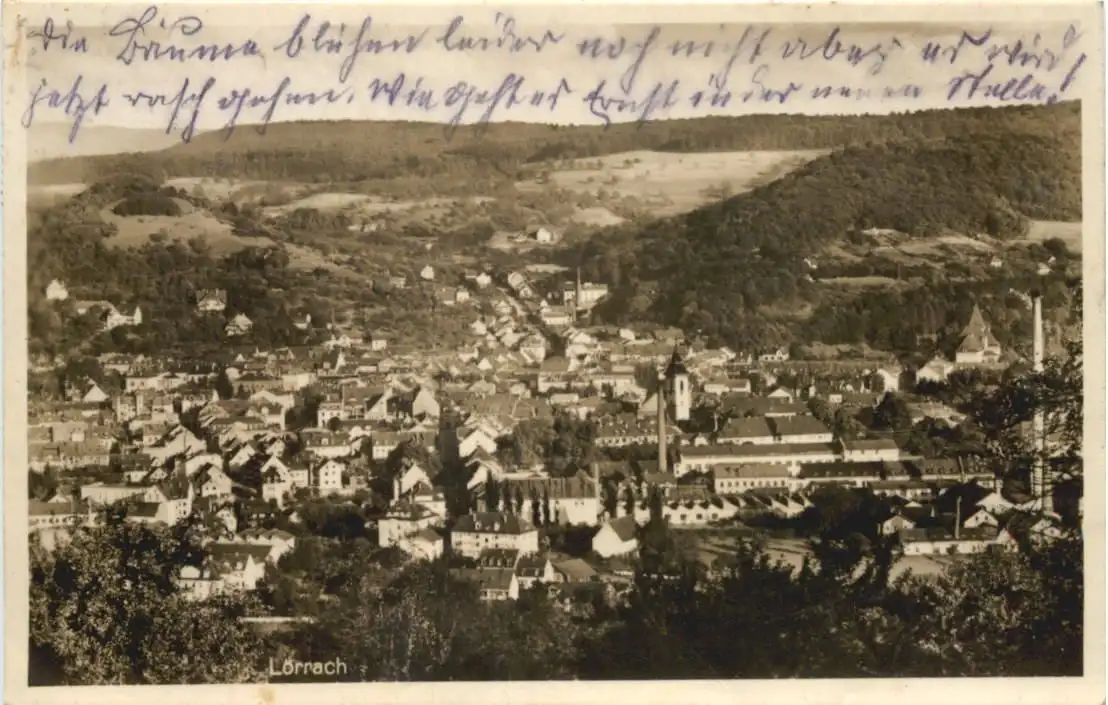 Die Bäume blühen leider noch nicht aber es wird
jetzt rasch gehen. Wie geht es Ernst in der neuen Stelle?
Lörrach